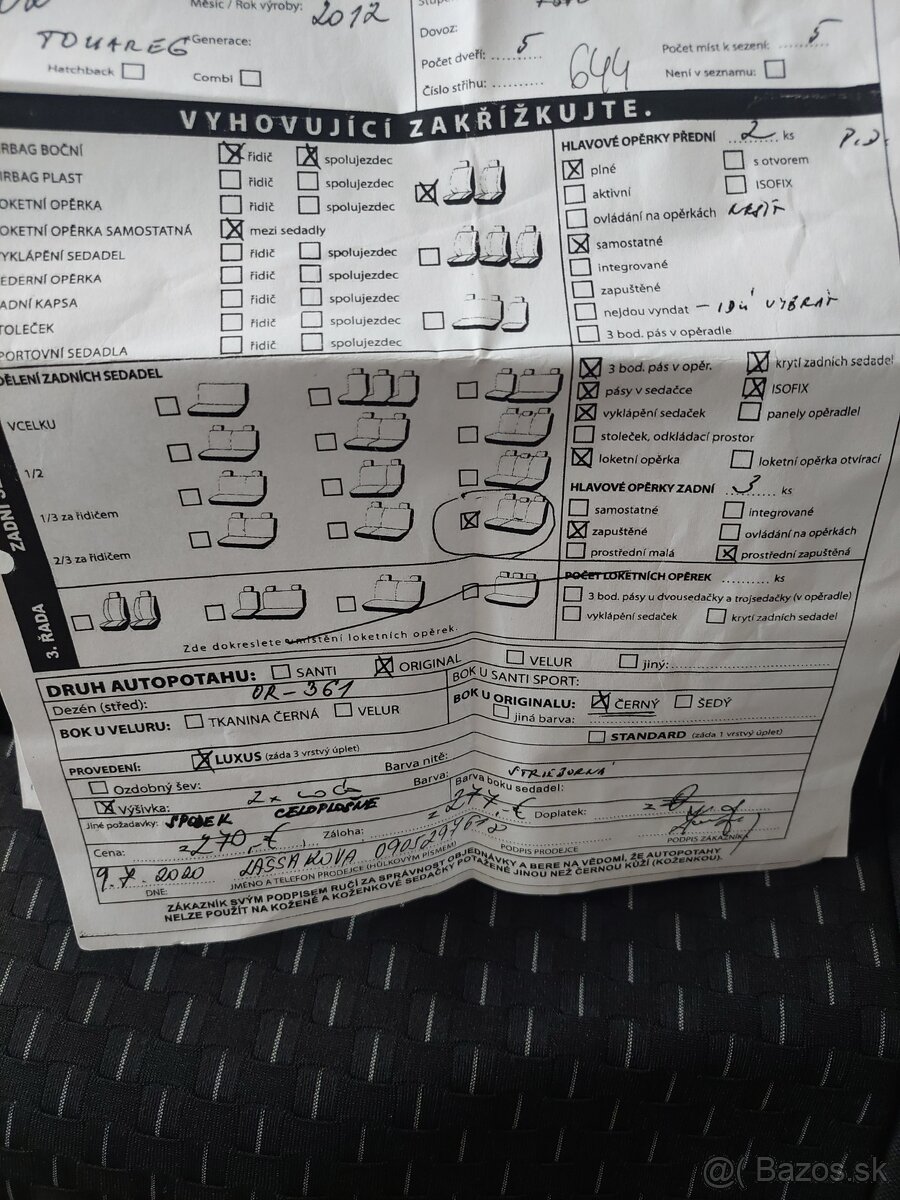 Měsíc / Rok výroby: 2012
TOUAREG Generace:
Hatchback Combi
Dovoz:
Počet dveří: 5
Číslo střihu: 644
Počet míst k sezení: 5
Není v seznamu:
VYHOVUJÍCÍ ZAKŘÍŽKUJTE.
RBAG BOČNÍ řidič spolujezdec
RBAG PLAST řidič spolujezdec
OKETNÍ OPĚRKA řidič spolujezdec
OKETNÍ OPĚRKA SAMOSTATNÁ mezi sedadly
YKLÁPĚNÍ SEDADEL řidič spolujezdec
EDERNÍ OPĚRKA řidič spolujezdec
ADNÍ KAPSA řidič spolujezdec
TOLEČEK řidič spolujezdec
PORTOVNÍ SEDADLA řidič spolujezdec
HLAVOVÉ OPĚRKY PŘEDNÍ 2 ks
plné s otvorem
aktivní ISOFIX
ovládání na opěrkách
samostatné
integrované
zapuštěné
nejdou vyndat – IDÚ VYBRAŤ
3 bod. pás v opěradle
DĚLENÍ ZADNÍCH SEDADEL
VCELKU
1/2
1/3 za řidičem
2/3 za řidičem
3. ŘADA
Zde dokreslete umístění loketních opěrek.
3 bod. pás v opěr. krytí zadních sedadel
pásy v sedačce ISOFIX
vyklápění sedaček panely opěradlel
stoleček, odkládací prostor
loketní opěrka loketní opěrka otvírací
HLAVOVÉ OPĚRKY ZADNÍ 3 ks
samostatné integrované
zapuštěné ovládání na opěrkách
prostřední malá prostřední zapuštěná
POČET LOKETNÍCH OPĚREK ks
3 bod. pásy u dvousedačky a trojsedačky (v opěradle)
vyklápění sedaček krytí zadních sedadel
DRUH AUTOPOTAHU: SANTI ORIGINAL VELUR jiný:
Dezén (střed): OR-361
BOK U SANTI SPORT:
BOK U VELURU: TKANINA ČERNÁ VELUR
BOK U ORIGINALU: ČERNÝ ŠEDÝ
jiná barva:
PROVEDENÍ: LUXUS (záda 3 vrstvý úplet)
STANDARD (záda 1 vrstvý úplet)
Ozdobný šev: Barva nitě:
Výšivka: Barva: STRIEBORNÁ
Barva boku sedadel:
Jiné požadavky: SPODEK CELOPLOŠNE
Cena: 270,-€ Záloha: Doplatek:
9.7.2020 LASSAKOVA
DNE: JMÉNO A TELEFON PRODEJCE (HŮLKOVÝM PÍSMEM) PODPIS PRODEJCE PODPIS ZÁKAZNÍKA
ZÁKAZNÍK SVÝM PODPISEM RUČÍ ZA SPRÁVNOST OBJEDNÁVKY A BERE NA VĚDOMÍ, ŽE AUTOPOTAHY
NELZE POUŽÍT NA KOŽENÉ A KOŽENKOVÉ SEDAČKY POTAŽENÉ JINOU NEŽ ČERNOU KŮŽÍ (KOŽENKOU).
@( Bazos.sk